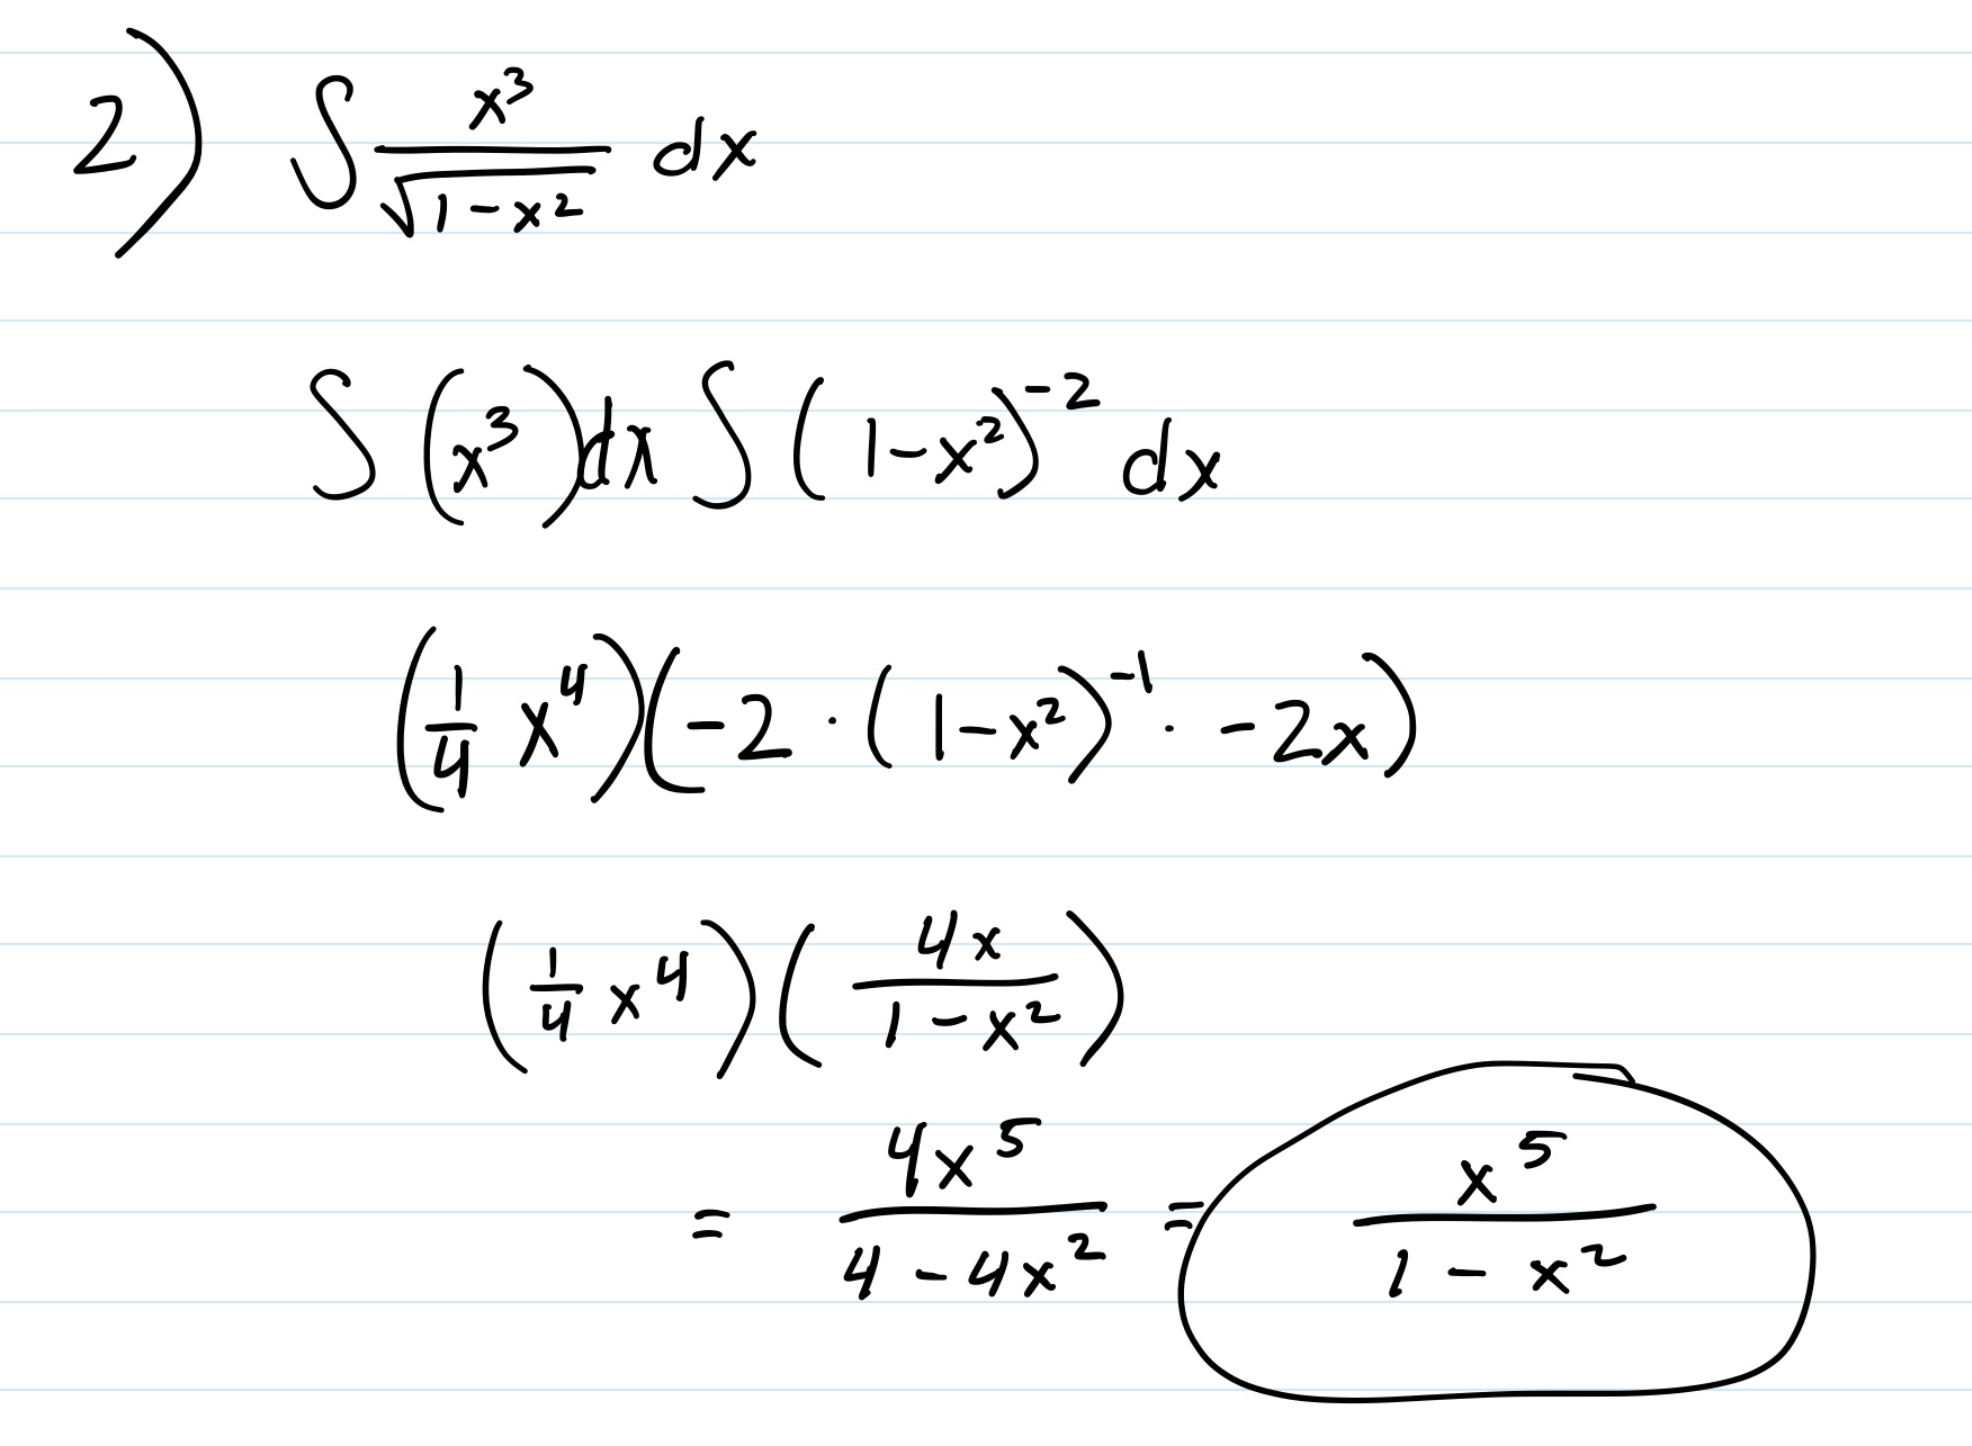 2) ∫ x³/√(1-x²) dx
∫ (x³)dx ∫ (1-x²)⁻² dx
(1/4 x⁴)(-2 · (1-x²)⁻¹ · -2x)
(1/4 x⁴)(4x/(1-x²))
= 4x⁵/(4-4x²) = x⁵/(1-x²)